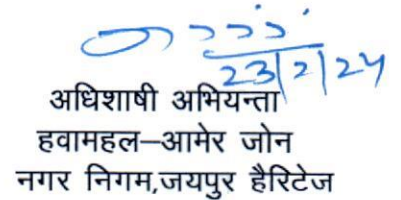 23/2/24
अधिशाषी अभियन्ता
हवामहल–आमेर जोन
नगर निगम,जयपुर हैरिटेज